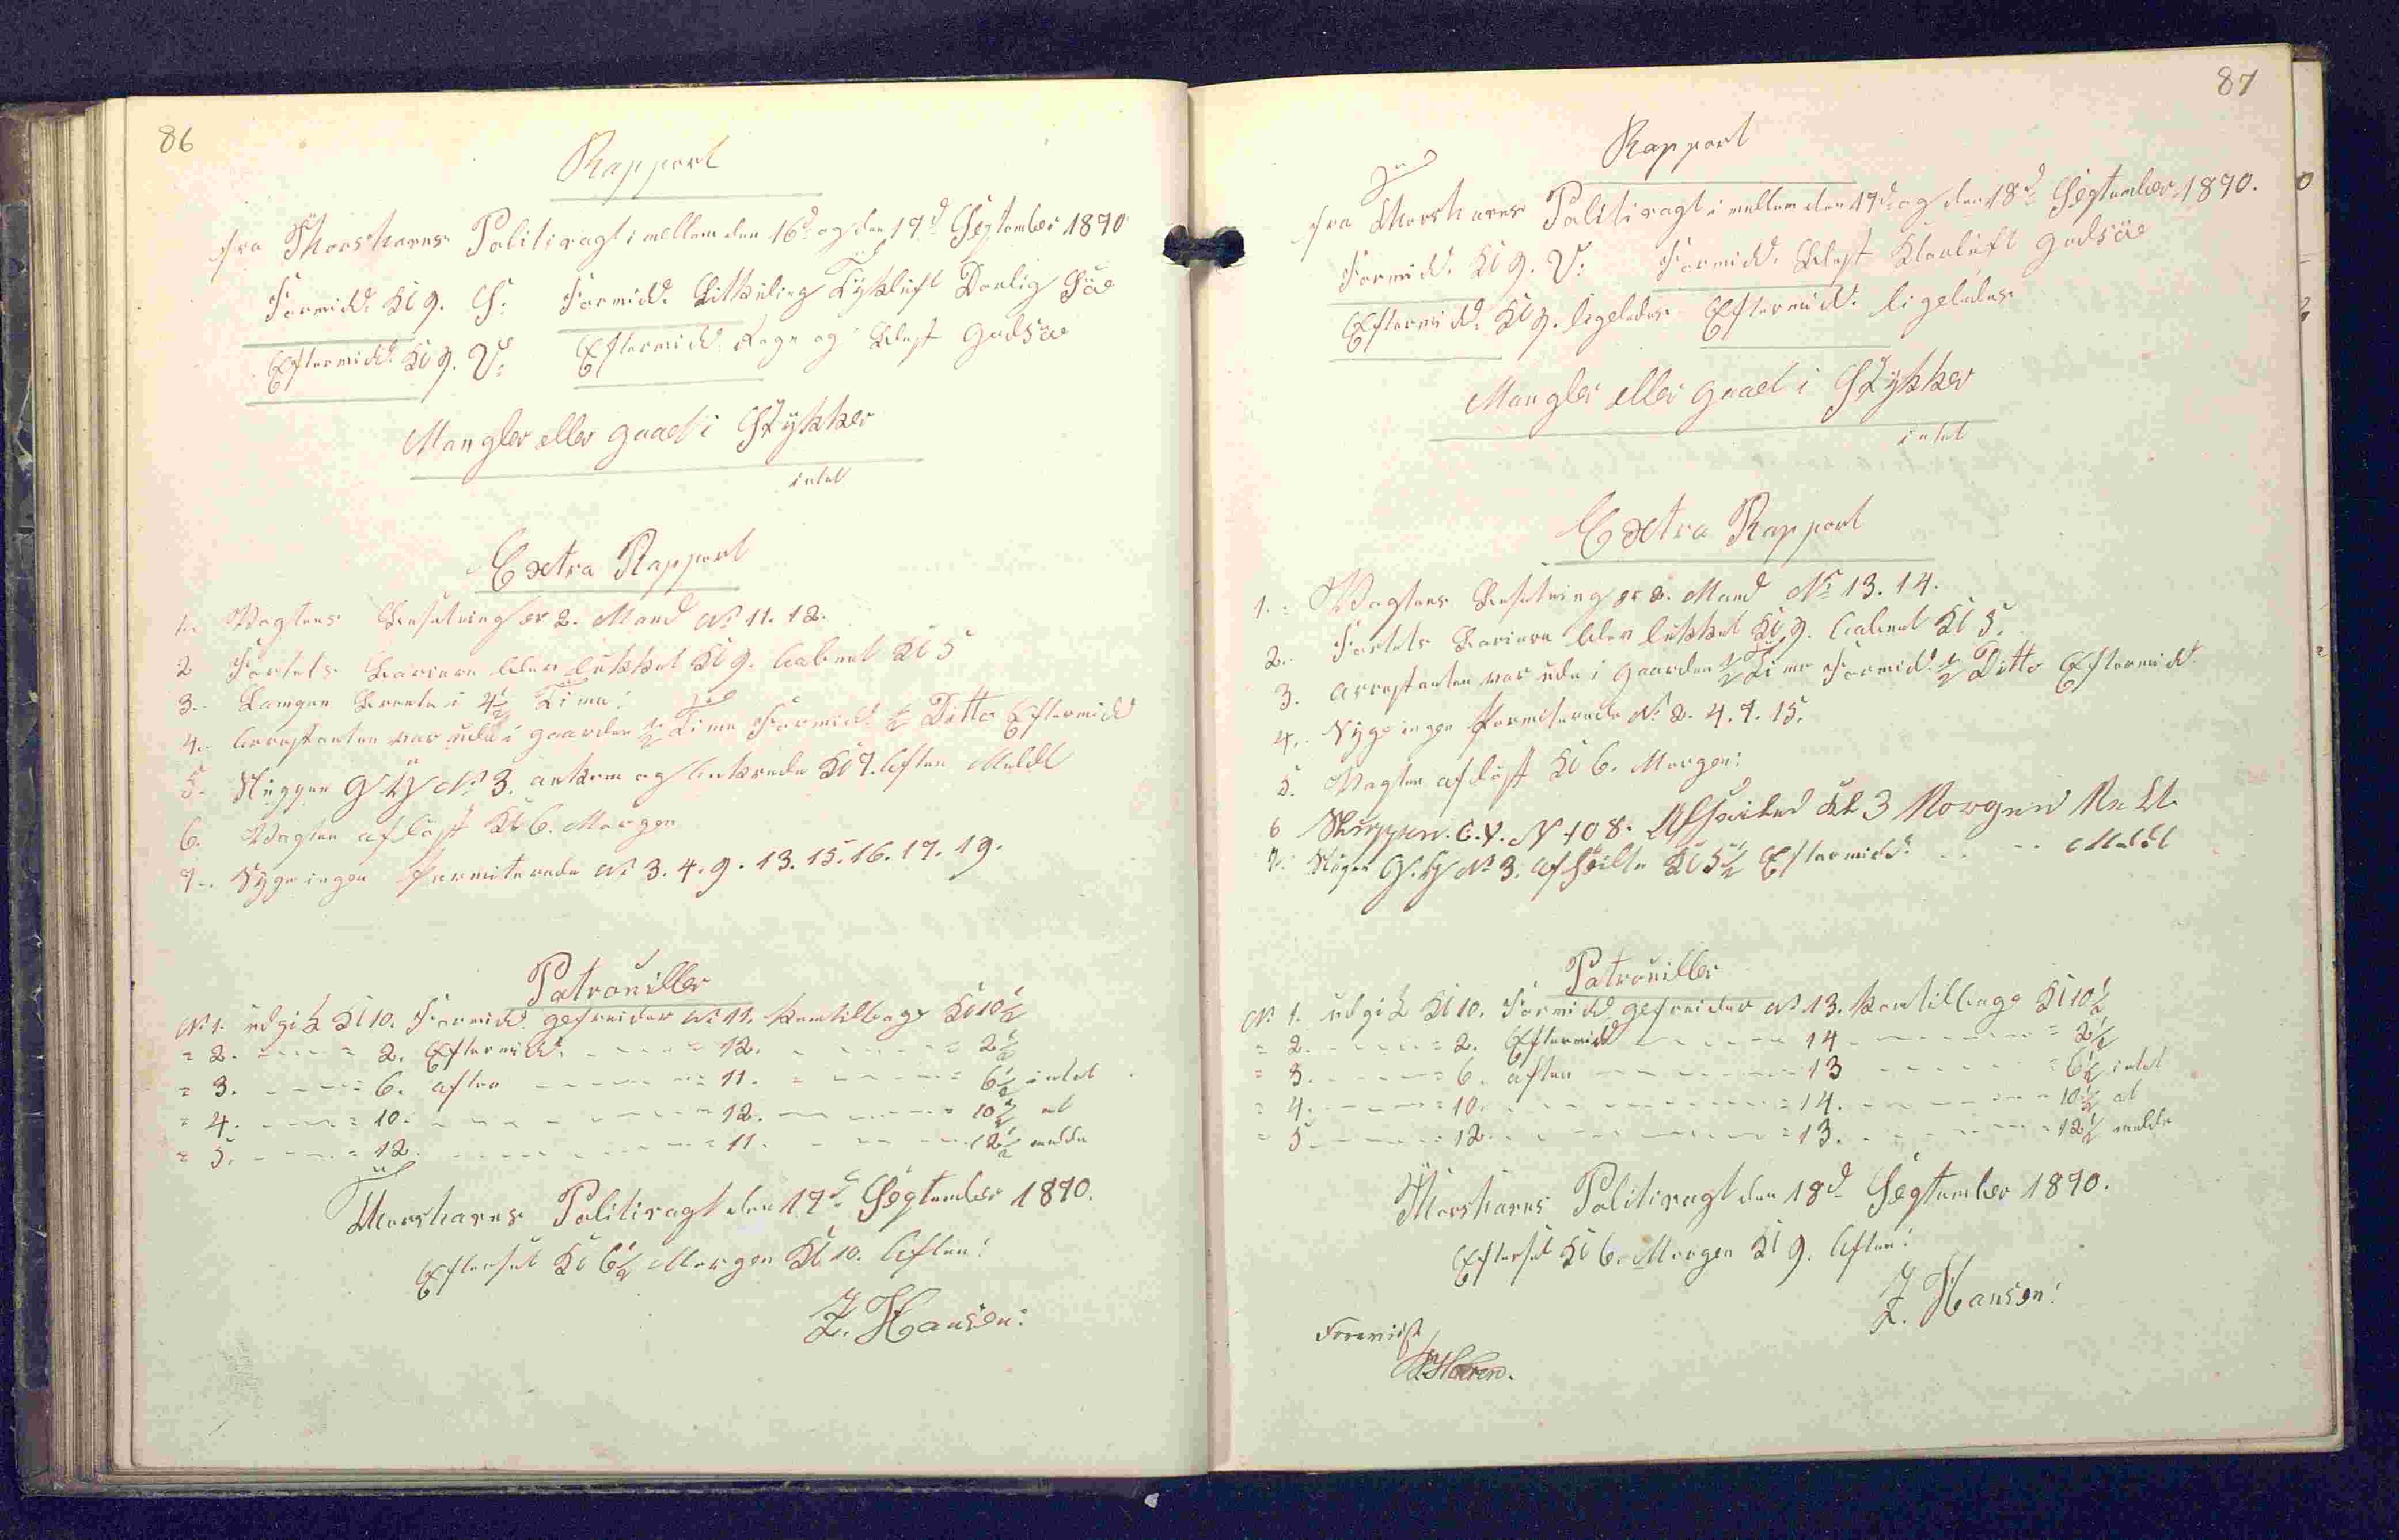 86
Rapport
fra Thorshavns Politivagt imellem den 16d og den 17d September 1890
Formidd. Kl 9. S: Formidd. Tykluft Daarlig Söe
Eftermidd. Kl 9. V: Eftermidd. Regn og Blest godSöe
Mangler eller gaaet i Stykker
intet
Extra Rapport
1. Vagtens Besetning er 2. Mand No 11. 12.
2 Fortets Bariere blev lukket Kl 9. aabnet Kl 5
3. Lampen brente i 4½ Time:
4. Arrestanten var ude i gaarden ½ Time Formidd. ½ Ditto Eftermidd
5. Sluppen G H No 3. ankom og ankrede Kl 7. Aften Meldt
6. Vagten aflöst Kl 6. Morgen
7. Syge ingen Permiterede No 3. 4. 9. 13. 15. 16. 17. 19.
Patrouiller
No 1. udgik Kl 10. Formidd. gefreider No 11. kom tilbage Kl 10½
= 2. - - - = 2. Eftermidd. - - - = 12. - - - = 2½
= 3. - - - = 6. aften - - - = 11. - - - = 6½ intet
= 4. - - - = 10. - - - = 12. - - - = 10½ at
= 5. - - - = 12. - - - = 11. - - - 12½ melde
Thorshavns Politivagt den 17d September 1890.
Efterset Kl 6½ Morgen Kl 10. Aften:
Z. Hansen:
87
Rapport
fra Thorshavns Politivagt imellem den 17d og den 18d September 1890.
Formidd. Kl 9. V: Formidd. Blest Klarluft godSöe
Eftermidd. Kl 9. ligeledes Eftermidd. ligeledes
Mangler eller gaaet i Stykker
intet
Extra Rapport
1. Vagtens Besetning er 2. Mand No 13. 14.
2. Fortets Bariere blev lukket Kl 9. Aabnet Kl 5.
3. Arrestanten var ude i gaarden ½ Time Formidd. ½ Ditto Eftermidd
4. Syge ingen Permiterede No 2. 4. 7. 15.
5. Vagten aflöst Kl 6. Morgen:
6 Sluppen. C.V. N 108. Afseiled Kl 3 Morgen
7. Slupen G. H No 3. afseilte Kl 5½ Eftermidd. - - Meldt
Patrouiller
No 1. udgik Kl 10. Formidd gefreider No 13. kom tilbage Kl 10½
= 2. - - - = 2. Eftermidd - - - 14 - - - = 2½
= 3. - - - = 6. aften - - - 13 - - - = 6½ intet
= 4. - - - = 10. - - - = 14. - - - = 10½ at
= 5. - - - = 12. - - - = 13. - - - = 12½ melde
Thorshavns Politivagt den 18d September 1890.
Efterset Kl 6. Morgen Kl 9. Aften:
Z. Hansen:
Forevist